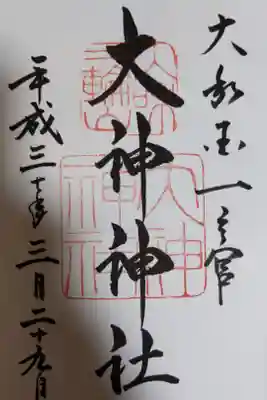 大和国一之宮
大神神社
大神神社
平成三十年三月二十九日